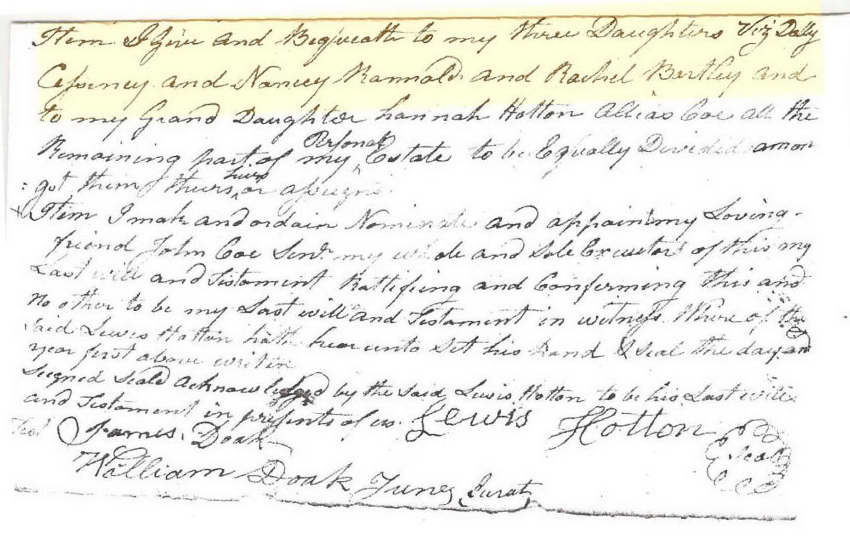 Item I Give and Bequeath to my three Daughters Viz Dolly
Cessney and Nancey Rannolds and Rachel Bertley and
to my Grand Daughter hannah Hotton Allias Coe all the
Remaining part of my Personal Estate to be Equally Divided amon
gst them theirs heirs or assigns
Item I mak and ordain Nominate and appoint my Loving
friend John Coe Senr. my whole and Sole Executor of this my
Last will and Testament Rattifing and Confirming this and
No other to be my Last will and Testament in witness Where of the
Said Lewis Hotton hath hear unto Set his hand & Seal the day and
year first above written
Signed Seald Acknowledged by the Said Lewis Hotton to be his Last will
and Testament in presents of us. Lewis Hotton Seal
Test James Doak
William Doak Junr Jurat